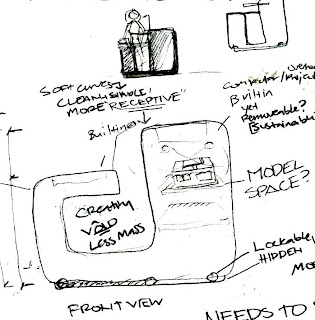 SOFT CURVES
CLEAN
MORE "RECEPTIVE"
Builtin
Computer/
Builtin
yet
Removeable?
CREATING
VOID
LESS MASS
MODEL
SPACE?
Lockable
HIDDEN
FRONT VIEW
NEEDS TO